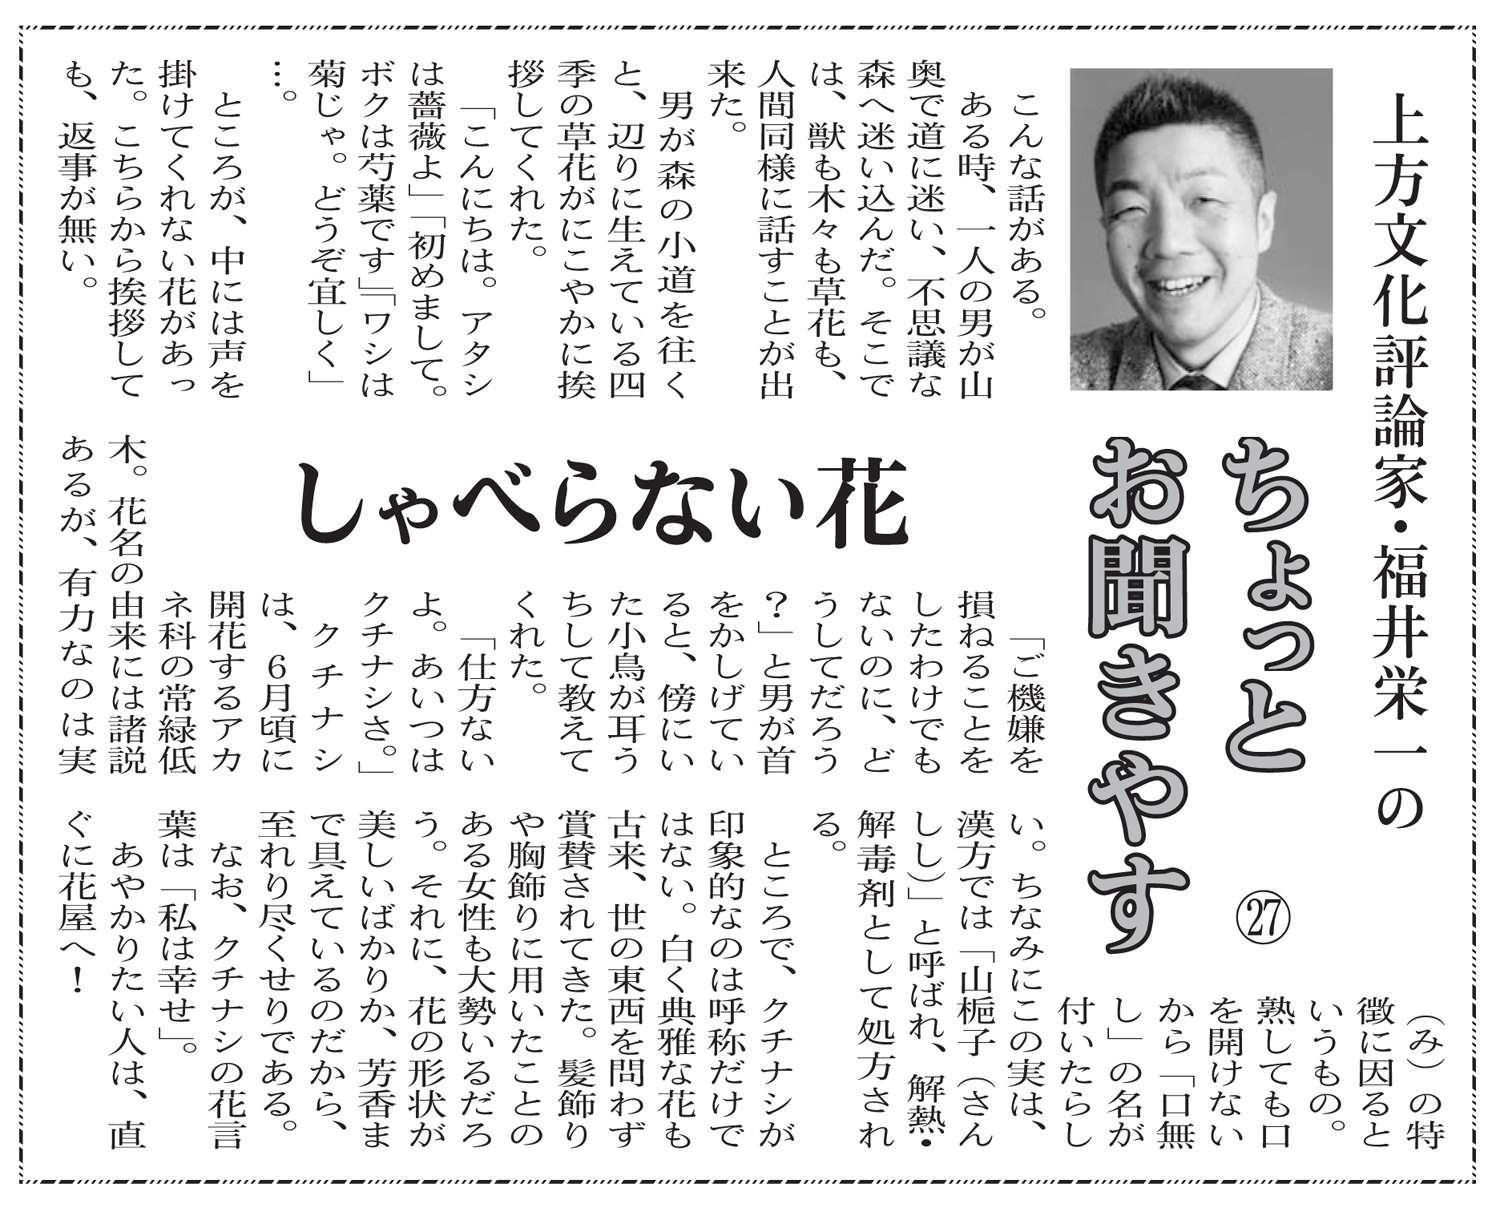 上方文化評論家・福井栄一の
ちょっと
お聞きやす
㉗
しゃべらない花
こんな話がある。
ある時、一人の男が山
奥で道に迷い、不思議な
森へ迷い込んだ。そこで
は、獣も木々も草花も、
人間同様に話すことが出
来た。
男が森の小道を往く
と、辺りに生えている四
季の草花がにこやかに挨
拶してくれた。
「こんにちは。アタシ
は薔薇よ」「初めまして。
ボクは芍薬です」「ワシは
菊じゃ。どうぞ宜しく」
…。
ところが、中には声を
掛けてくれない花があっ
た。こちらから挨拶して
も、返事が無い。
「ご機嫌を
損ねることを
したわけでも
ないのに、ど
うしてだろう
?」と男が首
をかしげてい
ると、傍にい
た小鳥が耳う
ちして教えて
くれた。
「仕方ない
よ。あいつは
クチナシさ。」
クチナシ
は、6月頃に
開花するアカ
ネ科の常緑低
木。花名の由来には諸説
あるが、有力なのは実
(み)の特
徴に因ると
いうもの。
熟しても口
を開けない
から「口無
し」の名が
付いたらし
い。ちなみにこの実は、
漢方では「山梔子(さん
しし)」と呼ばれ、解熱・
解毒剤として処方され
る。
ところで、クチナシが
印象的なのは呼称だけで
はない。白く典雅な花も
古来、世の東西を問わず
賞賛されてきた。髪飾り
や胸飾りに用いたことの
ある女性も大勢いるだろ
う。それに、花の形状が
美しいばかりか、芳香ま
で具えているのだから、
至れり尽くせりである。
なお、クチナシの花言
葉は「私は幸せ」。
あやかりたい人は、直
ぐに花屋へ!